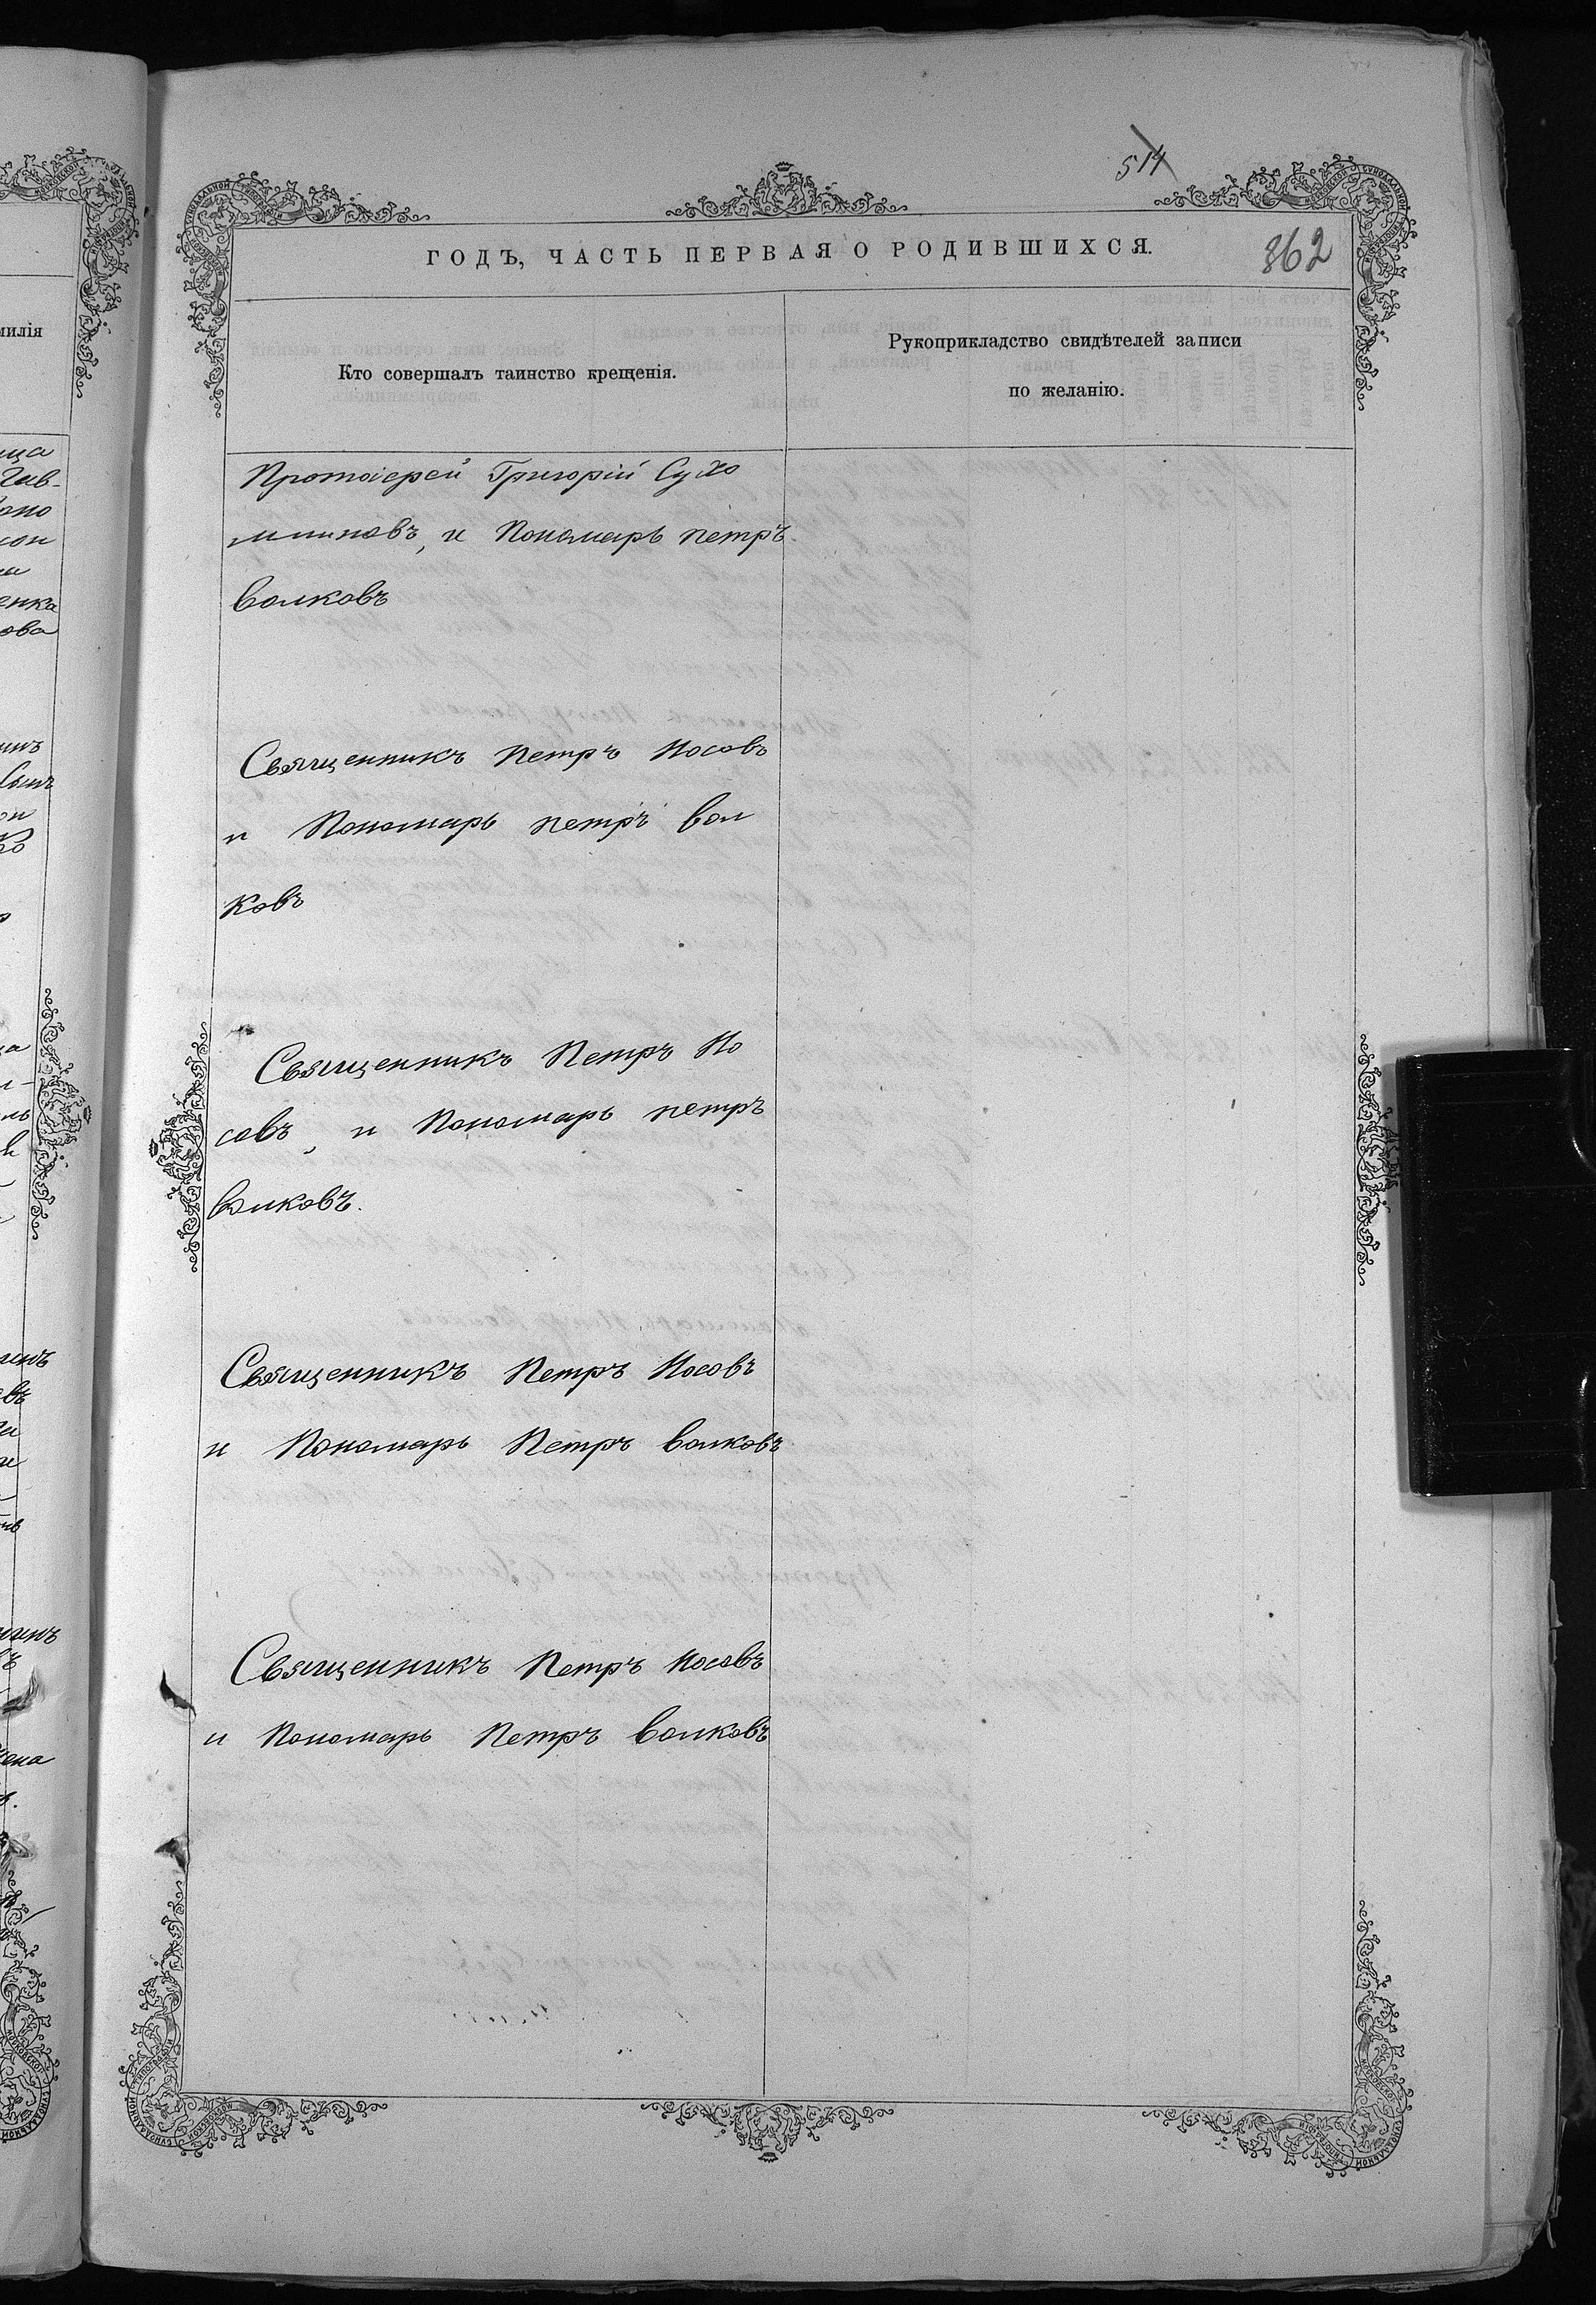 514
ГОДЪ, ЧАСТЬ ПЕРВАЯ О РОДИВШИХСЯ.
362
Кто совершалъ таинство крещенія.
Рукоприкладство свидѣтелей записи
по желанію.
Протоіерей Григорій Сухо
млиновъ, и Пономарь петръ
волковъ
Священникъ Петръ Носовъ
и Пономарь петръ вол
ковъ
Священникъ Петръ Но
совъ, и Пономарь петръ
волковъ.
Священникъ Петръ Носовъ
и Пономарь Петръ волковъ
Священникъ Петръ Носовъ
и Пономарь Петръ волковъ